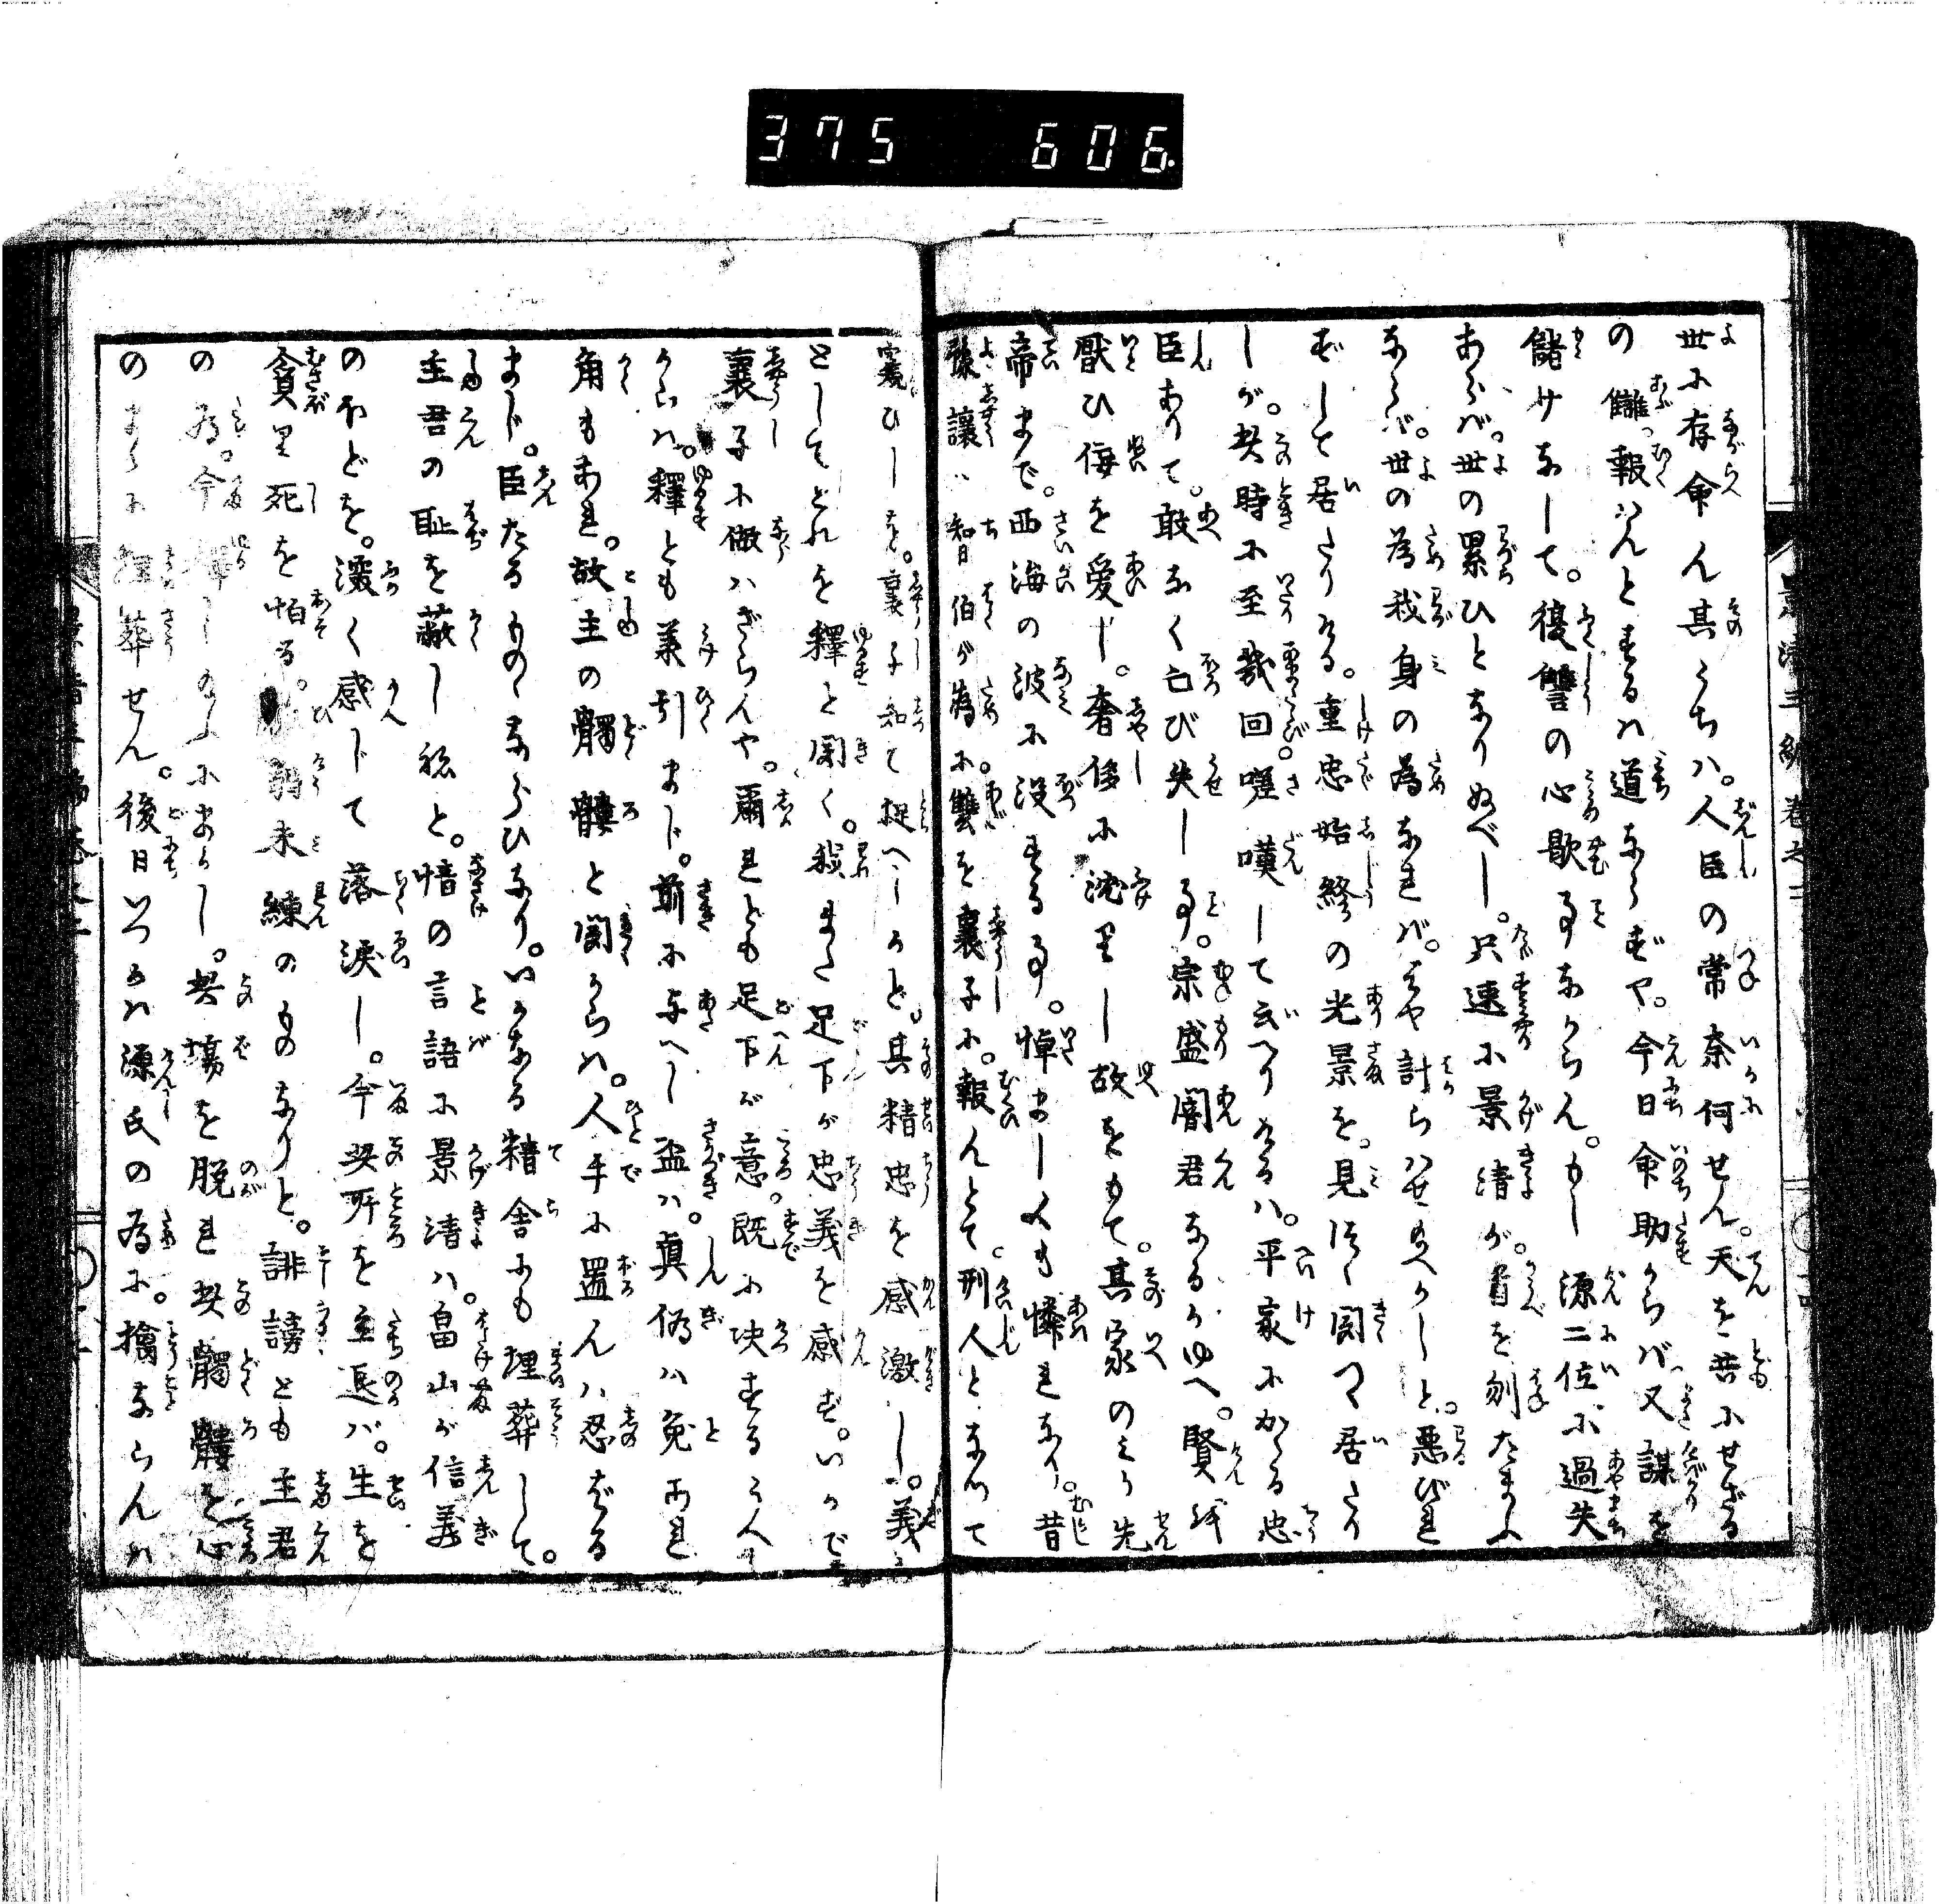 375 606
世に存命ん其うちハ。人臣の常奈何せん。天を共にせざる
の讎報ハんとするハ道ならずや。今日命助からバ又謀を
儲けなして。復讐の心歇事なからん。もし源二位に過失
あらバ。世の累ひとなりぬべし。只速に景清が。首を刎たまふ
ならバ。世の為我身の為なれバ。はや計らハせ給へかしと。悪びれ
ずして居たりける。重忠始終の光景を。見つゝ聞つゝ居たり
しが。其時に至幾回嗟嘆して云へりけるハ。平家にかゝる忠
臣ありて。敢なく亡び失し事。宗盛闇君なるがゆへ。賢を
厭ひ侮を愛し。奢侈に沈里し故をもて。其家のミか先
帝まで。西海の波に没する事。悼まし人も憐れなり。昔
豫讓ハ知伯が為に。讐を襄子に。報んとて。刑人となつて
窺ひしを。襄子知て捉へしかど。其精忠を感激し。義士
としてとれを釋と聞く。我また足下が忠義を感ず。いかで
襄子に倣ハざらんや。爾れども足下が意。既に决するうへハ
からハ。釋とも美引まじ。前に与へし盃ハ。眞偽ハ兎あれ
角もあれ。故主の髑髏と聞からハ。人手に置んハ忍ばざる
まじ。臣たるものゝならひなり。いかなる精舎にも埋葬して。
主君の恥を蔽し祢と。情の言語に景清ハ。畠山が信義
のほどを。深く感じて落涙し。今此所を立退バ。生を
貪里死を怕る。卑弱未練のものなりと。誹謗とも主君
の為。今釋しのふにまかし。此塲を脱れ此髑髏を心
のまゝに埋葬せん。後日いつかハ源氏の為に。擒ならんハ